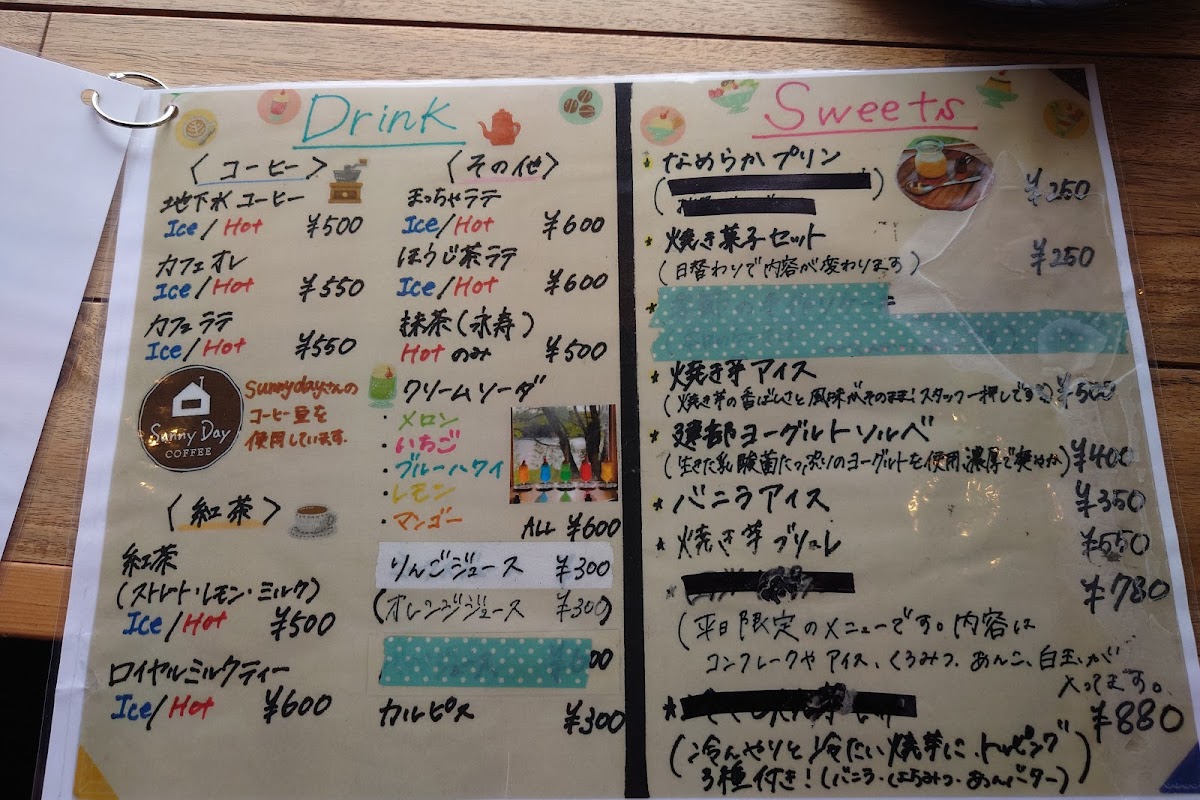 Drink
〈コーヒー〉
地下水コーヒー
Ice/Hot ¥500
カフェオレ
Ice/Hot ¥550
カフェラテ
Ice/Hot ¥550
Sunny Day
COFFEE
Sunnydayさんの
コーヒー豆を
使用しています.
〈紅茶〉
紅茶
(ストレート・レモン・ミルク)
Ice/Hot ¥500
ロイヤルミルクティー
Ice/Hot ¥600
〈その他〉
まっちゃラテ
Ice/Hot ¥600
ほうじ茶ラテ
Ice/Hot ¥600
抹茶(永寿)
Hotのみ ¥500
クリームソーダ
・メロン
・いちご
・ブルーハワイ
・レモン
・マンゴー
ALL ¥600
りんごジュース ¥300
(オレンジジュース ¥300)
カルピス ¥300
Sweets
なめらかプリン
¥250
焼き菓子セット
(日替わりで内容が変わります) ¥250
焼き芋アイス
(焼き芋の香ばしさと風味がそのまま!スタッフ一押しです) ¥500
建部ヨーグルトソルベ
(生きた乳酸菌たっぷりのヨーグルトを使用、濃厚で爽やか) ¥400
バニラアイス ¥350
焼き芋ブリュレ ¥550
¥780
(平日限定のメニューです。内容は
コンフレークやアイス、くろみつ、あんこ、白玉、が
入ってます。
¥880
(冷んやりと冷たい焼芋に、トッピング
3種付き!(バニラ・はちみつ・あんバター)